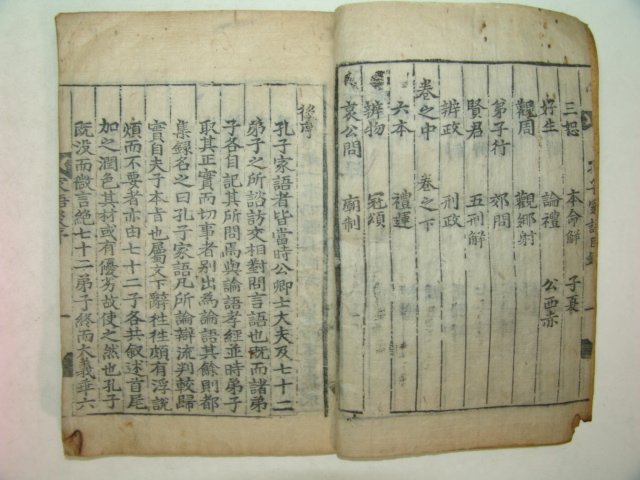 孔子家語目錄 一
三恕 本命解 子夏
好生 論禮 公西赤
觀周 觀鄉射
弟子行 郊問
賢君 五刑解
辨政 刑政
卷之中 卷之下
六本 禮運
辨物 冠頌
哀公問 廟制
後序
孔子家語者皆當時公卿士大夫及七十二
弟子之所諮訪交相對問言語也既而諸弟
子各自記其所問焉與論語孝經並時弟子
取其正實而切事者別出爲論語其餘則都
集錄名之曰孔子家語凡所論辯流判較歸
實自夫子本旨也屬文下辭往往頗有浮說
煩而不要者亦由七十二子各共叙述首尾
加之潤色其材或有優劣故使之然也孔子
既没而微言絶七十二弟子終而大義乖六